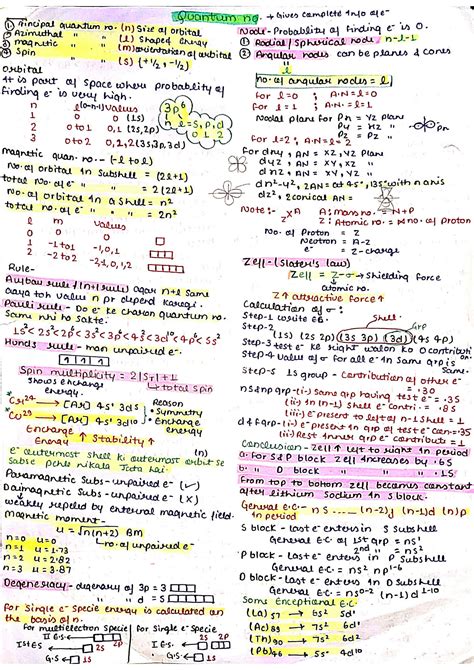 Quantum no. → Gives complete info of e⁻
① Principal quantum no. (n) Size of orbital
② Azimuthal " " (l) Shaped Energy
③ magnetic " " (m) orientation of orbital
④ Spin " " (s) (+1/2, -1/2)
Orbital
It is part of space where probability of
finding e⁻ is very high.
n l (o-n-1) Values
1 0 0 (1s)
2 0 to 1 0,1 (2s, 2p)
3 0 to 2 0,1,2 (3s 3p 3d)
3p⁶
n l = s, p, d
0 1 2
Magnetic quan. no. - (-l to l)
No. of orbital in Subshell = (2l+1)
total No. of e⁻ " " = 2(2l+1)
No. of orbital in a Shell = n²
total no. of e⁻ " " = 2n²
l m Values
0 0 0
1 -1 to 1 -1,0,1
2 -2 to 2 -2,-1,0,1,2
Rule-
Aufbau rule / (n+l rule) agar n+l Same
aaya toh value n pr depend karegi.
Pauli rule - Do e⁻ ke charon quantum no.
Same nhi ho sakte.
1s² < 2s² < 2p⁶ < 3s² < 3p⁶ < 4s² < 3d¹⁰ < 4p⁶ < 5s²
Hunds rule - max unpaired e⁻.
Spin multiplicity = 2|S|+1
Shows enchange energy. total spin
Cr²⁴ → [Ar] 4s¹ 3d⁵
Cu²⁹ → [Ar] 4s¹ 3d¹⁰
Reason
• Symmetry
• Enchange Energy
Enchange Energy ↑ Stability ↑
e⁻ outermost shell ki outermost orbit se
Sabse pehle nikala Jata hai.
Paramagnetic Subs - unpaired e⁻ (✓)
Daimagnetic Subs - unpaired e⁻ (×)
weakly repelled by enternal magnetic field.
Magnetic moment -
u = √n(n+2) BM
no. of unpaired e⁻
n=0 u=0
n=1 u=1.73
n=2 u=2.82
n=3 u=3.87
Degeneracy - degenary of 3p = 3
" " d = 5
For Single e⁻ Specie energy is calculated on
the basis of n.
For multielection Specie
II E.S
Ist E.S 2s 2p
G.S 1s
For Single e⁻ Specie
I E.S 2s 2p
G.S 1s
Node - Probability of finding e⁻ is 0.
① Radial / Spherical node n-l-1
② Angular nodes can be planes & cones
l
no. of angular nodes = l
for l=0 ; A.N=l=0
for l=1 ; A.N=l=1
Nodal plans for Pn = YZ plane
Py = XZ "
Pz = XY "
For l=2 ; A.N=l=2
For dny , AN = XZ, YZ plane
dyz , AN = XY, XZ "
dnz , AN = XY, YZ "
dn²-y², 2AN = at 45°, 135° with n axis
dz², 2 conical AN =
Note :- ᶻXᴬ A: mass no. = N+P
Z: Atomic no. = no. of Proton
No. of Proton = Z
Neutron = A-Z
e⁻ = Z-charge
Zeff - (Slater's law)
Zeff = Z-σ → Shielding force
atomic no.
Z↑ attractive force ↑
Calculation of σ :
Step-1 write E.C.
Step-2 Shell Grp
(1s) (2s 2p) (3s 3p) (3d) (4s 4p)
Step-3 test e⁻ ke right walon ko 0 contribution
Step-4 Value of σ for all e⁻ in Same grp is Same.
Step-5 1s group - Contribution of other e⁻ = .30
ns & np grp - (i) Same grp having test e⁻ = .35
(ii) in (n-1) Shell e⁻ contri. = .85
(iii) e⁻ present to left of n-1 Shell = 1
d & f grp - (i) e⁻ present in grp of test e⁻ can = .35
(ii) Rest inner grp e⁻ contribut = 1
Conclusion - Zeff ↑ left to right in period
a. For S & P block Zeff Increases by .65
b. " D block " " .15
From top to bottom Zeff becomes constant
after lithium Sodium in S block.
General e.c. - nS .... (n-2)f (n-1)d (n)p
in period (n)
S block - last e⁻ enters in S Subshell
General E.C. of 1st grp = ns¹
2nd " = ns²
P block - last e⁻ enters in P Subshell
General E.C. = ns² np¹⁻⁶
D block - Last e⁻ enters in D Subshell
General E.C = ns⁰⁻² (n-1)d¹⁻¹⁰
Some Exceptional E.C.
(La) 57 → 6s² 5d¹
(Ac) 89 → 7s² 6d¹
(Th) 90 → 7s² 6d²